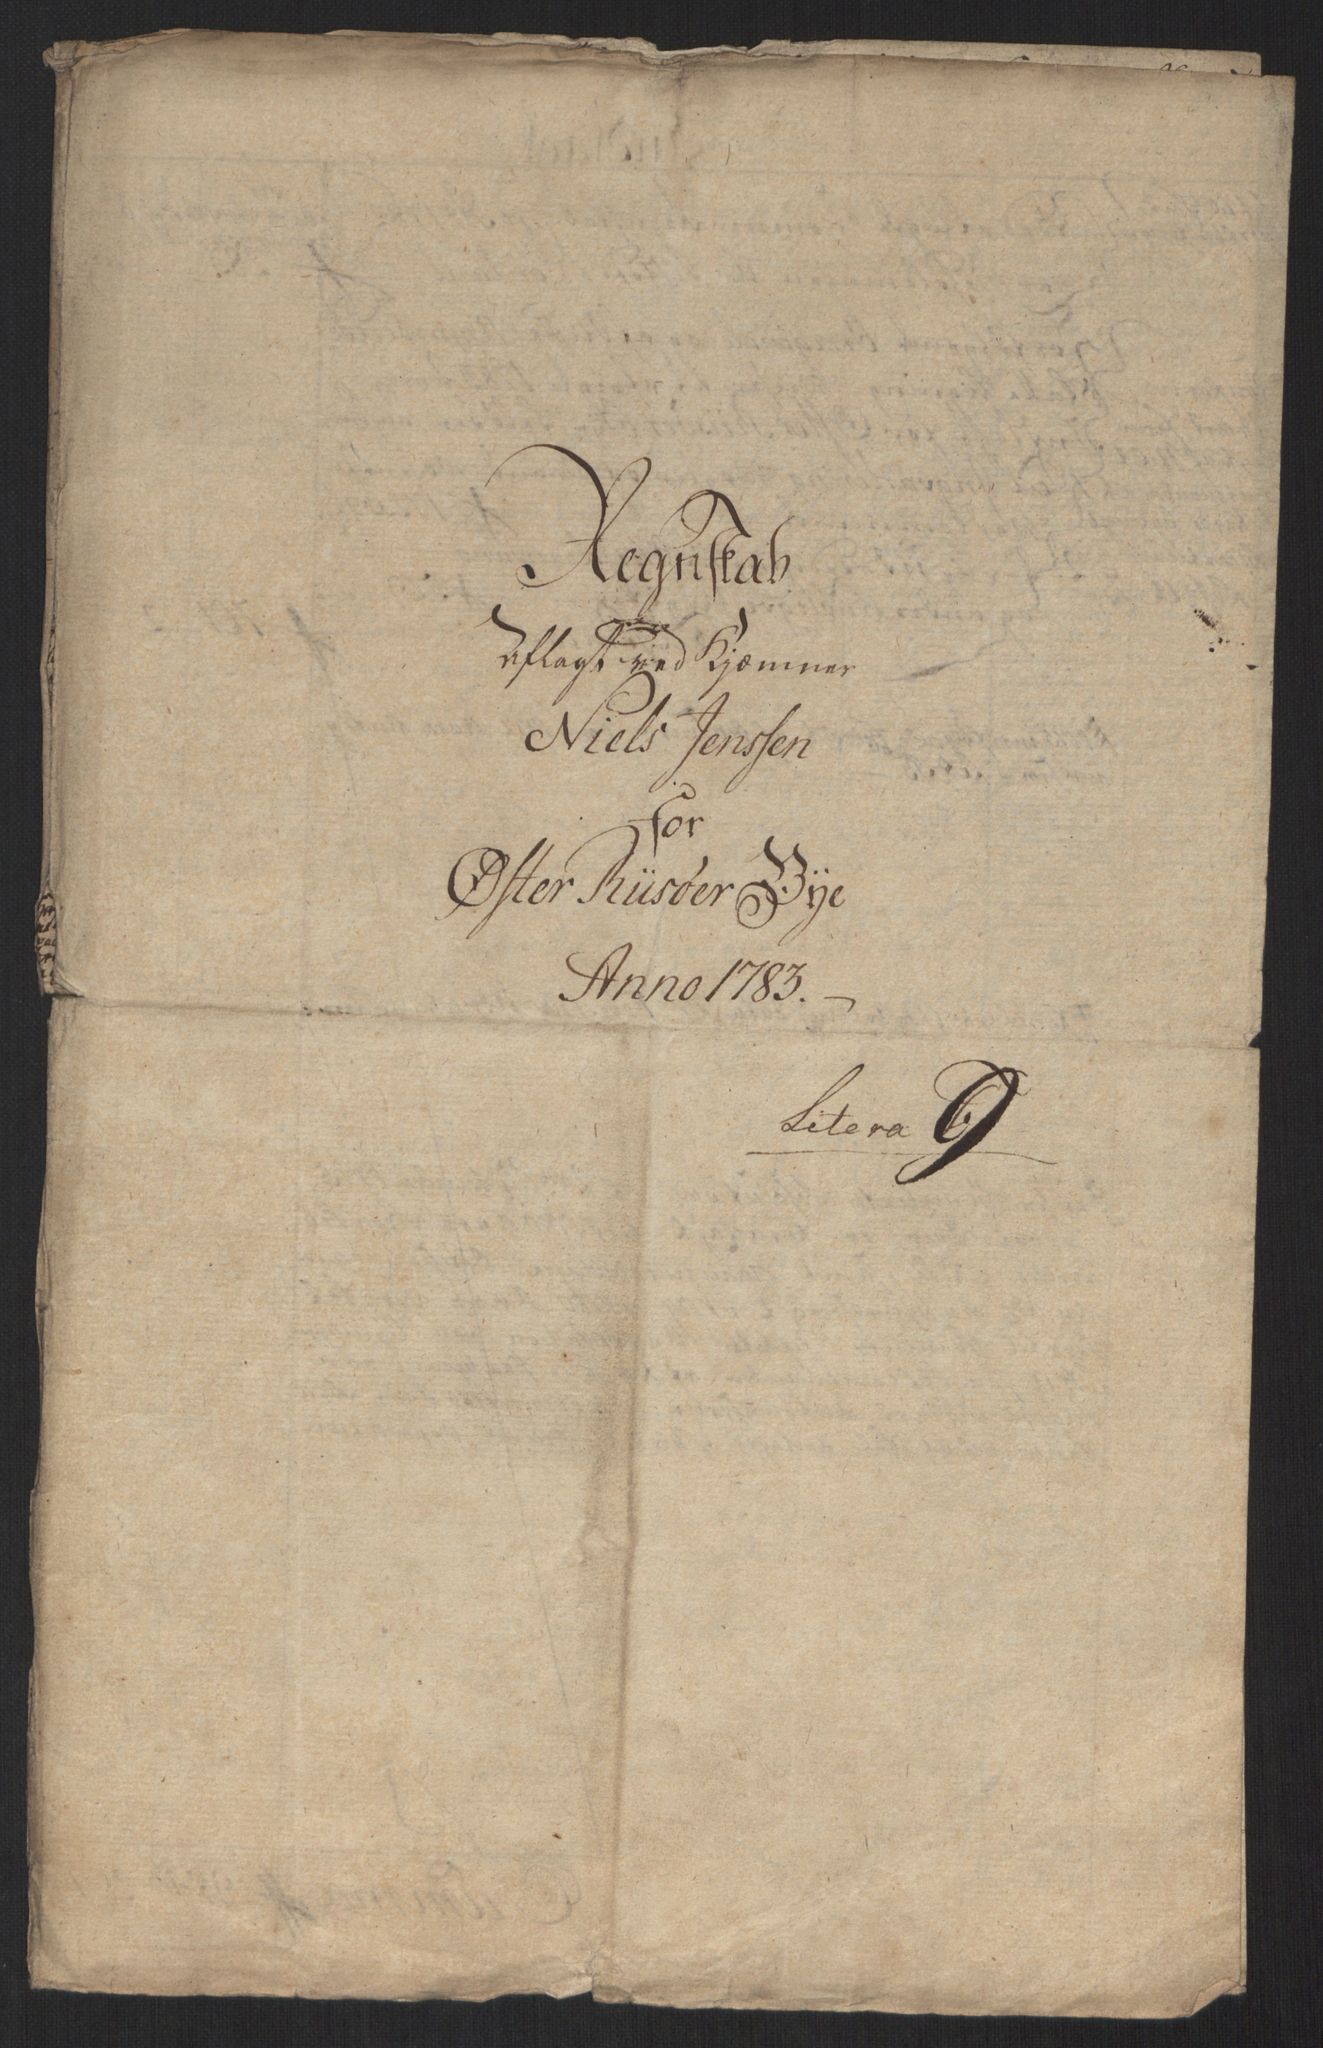 Regnskab
Aflagt ved Kjæmner
Niels Jenssen
for
Øster Riisöer Bÿe
Anno 1783.
Litera